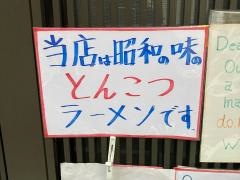 当店は昭和の味の
とんこつ
ラーメンです
Dea
Ou
a
ma
do.
W